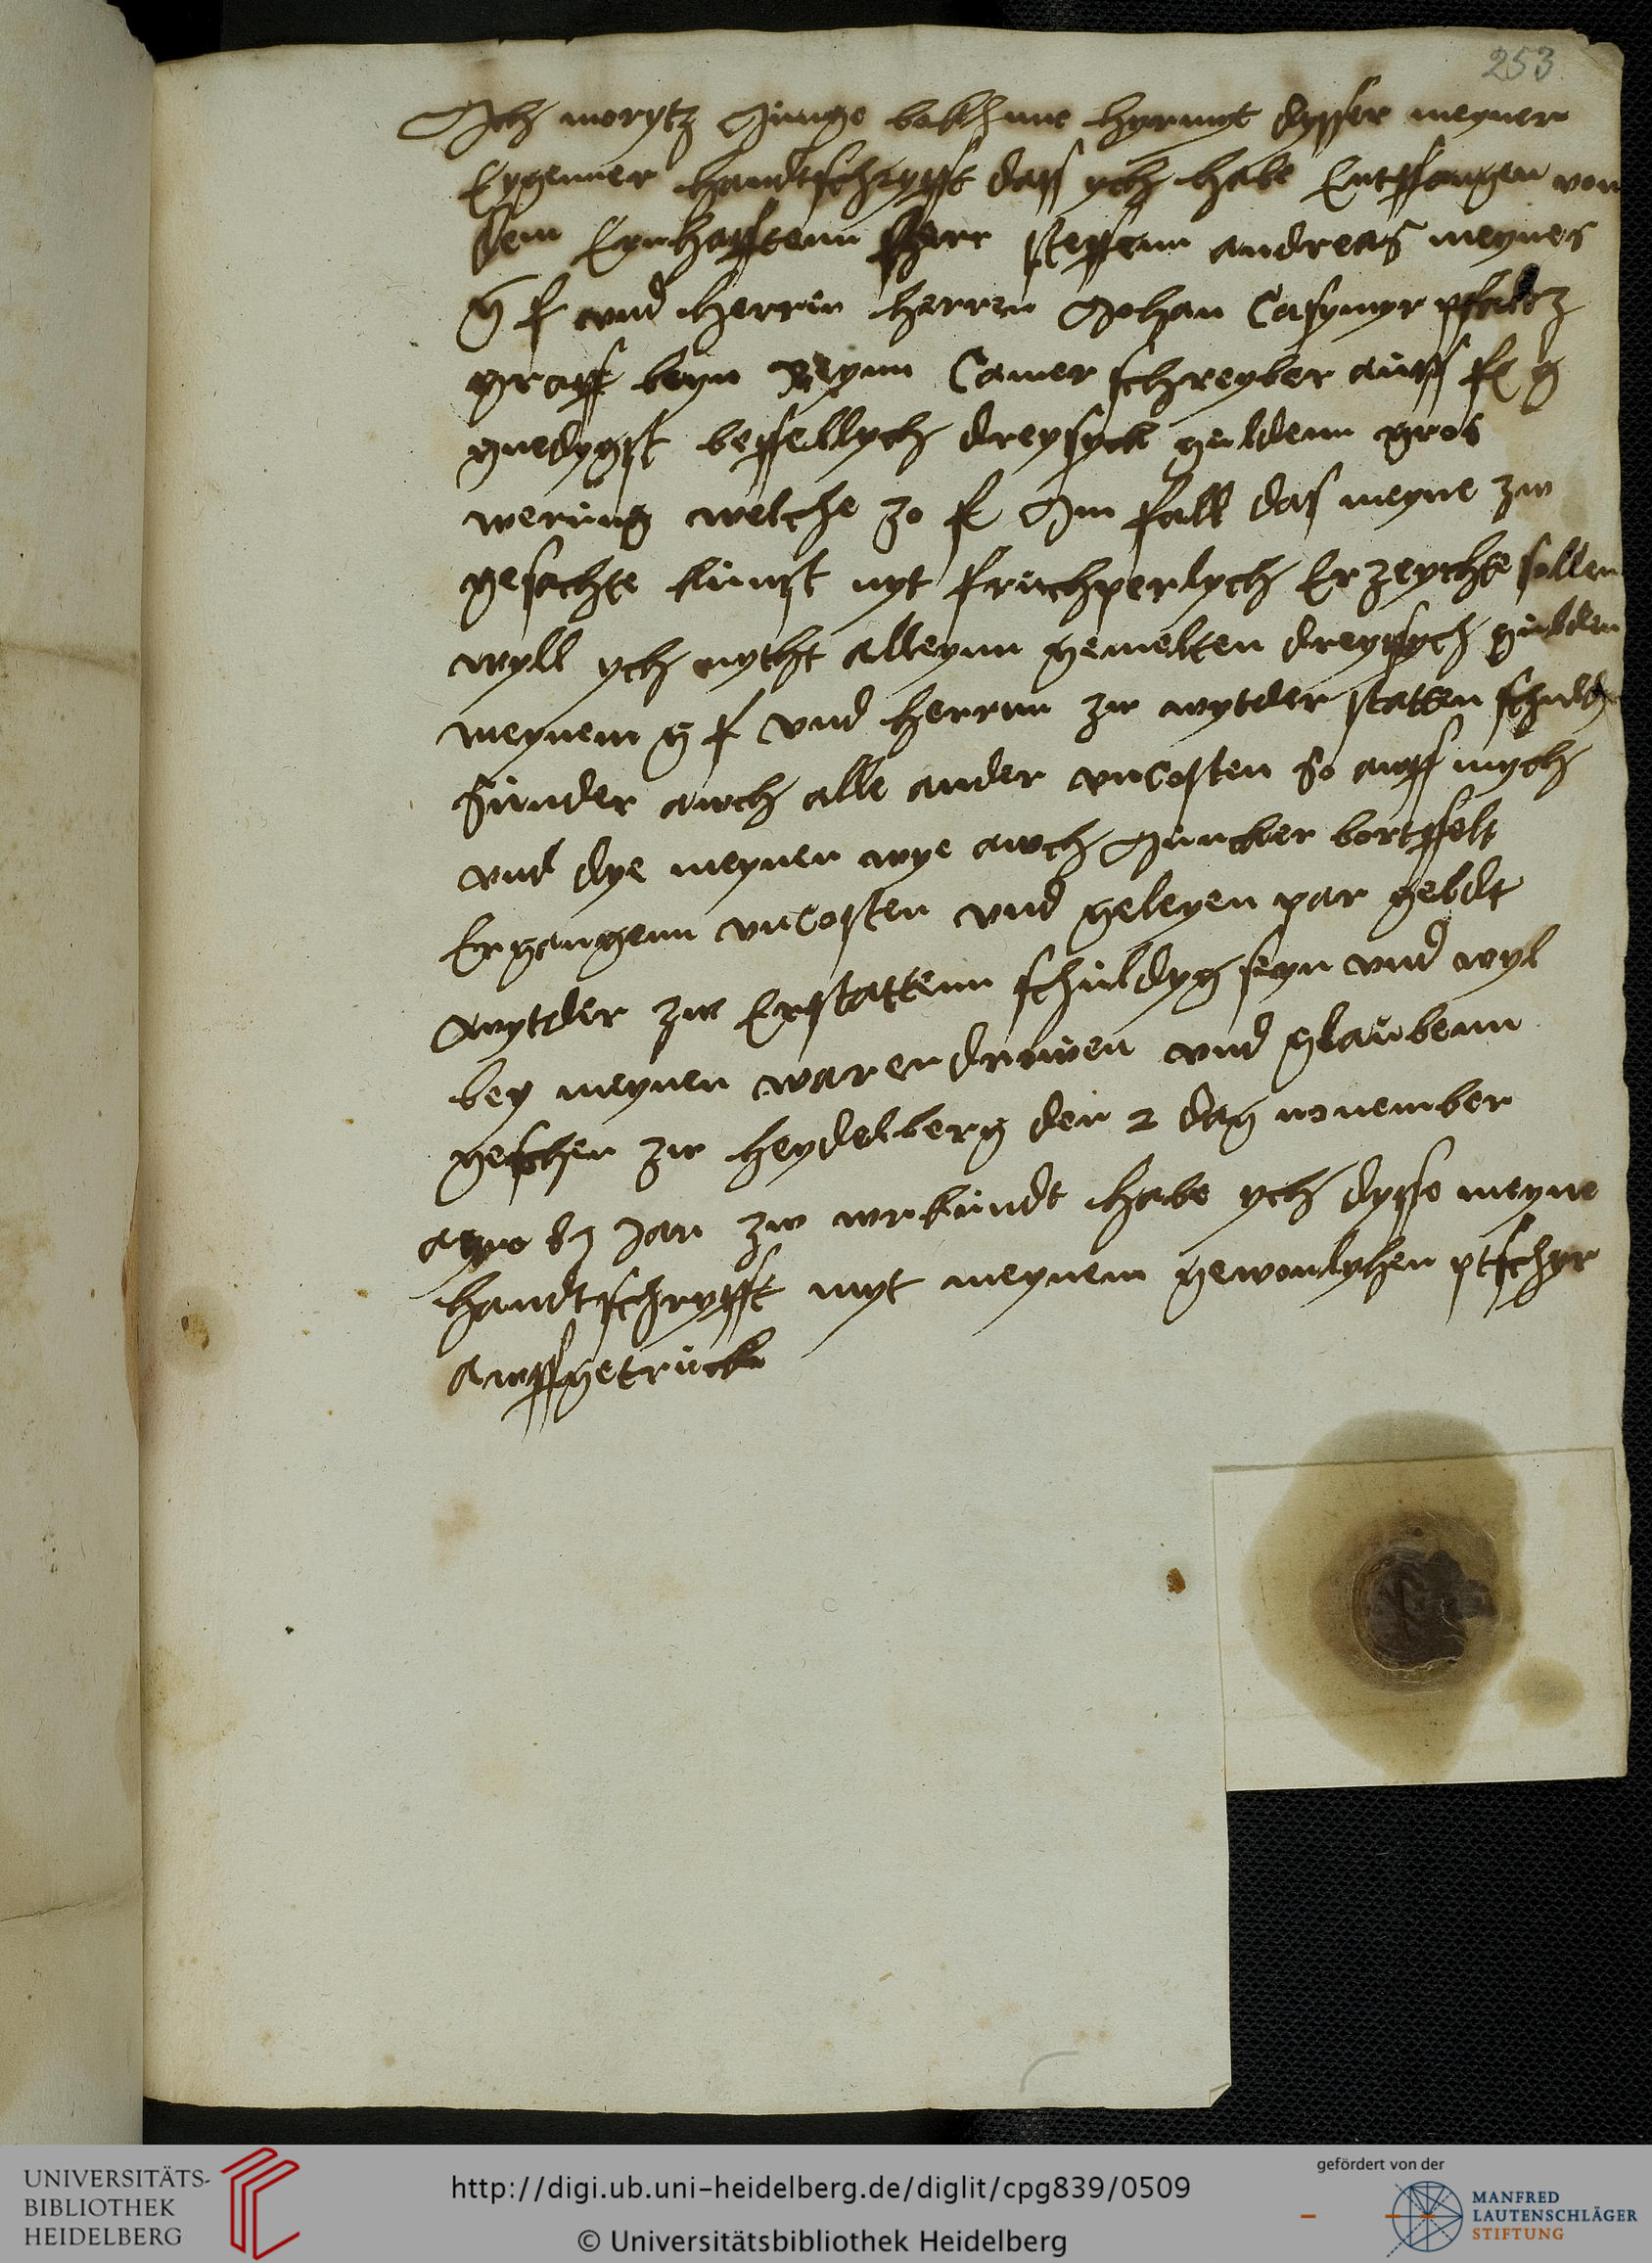 253
Ich morytz Junge bekhenne hyrmyt dysser meyner
Eygenner handtschryfft dass ych habe Entpfangen von
dem Ernhafftenn Herr steffenn andreas meynes
g f vnd Herrn herren Johan Casymyr pfaltz
graff beyn Reynn Camer schreyber auff f g
gnedygst beffellych dreysyck guldenn gros
werung welche 30 f Im fall das meyne zw
gesachte kunst nyt fruchperlych Erzeycht sollen
wyll ych nytht alleynn gemelten dreyssych gulden
meynem g f vnd herren zw wytder statten schuld
sunder awch alle ander vncosten so awff mych
vnd dye meynen wye awch Juncker bortffelt
Ergangenn vncosten vnd geleyen par geldt
wytder zw Erstattenn schuldyg seyn vnd wyl
bey meynen waren drwen vnd glaubenn
geschen zw heydelberg den 2 dag nouember
Jar zw wrkundt habe ych dysse meyne
handtschryfft myt meynem gewonlychen ptschyr
awffgetruckt
UNIVERSITÄTS-
BIBLIOTHEK
HEIDELBERG
http://digi.ub.uni-heidelberg.de/diglit/cpg839/0509
© Universitätsbibliothek Heidelberg
gefördert von der
MANFRED
LAUTENSCHLÄGER
STIFTUNG